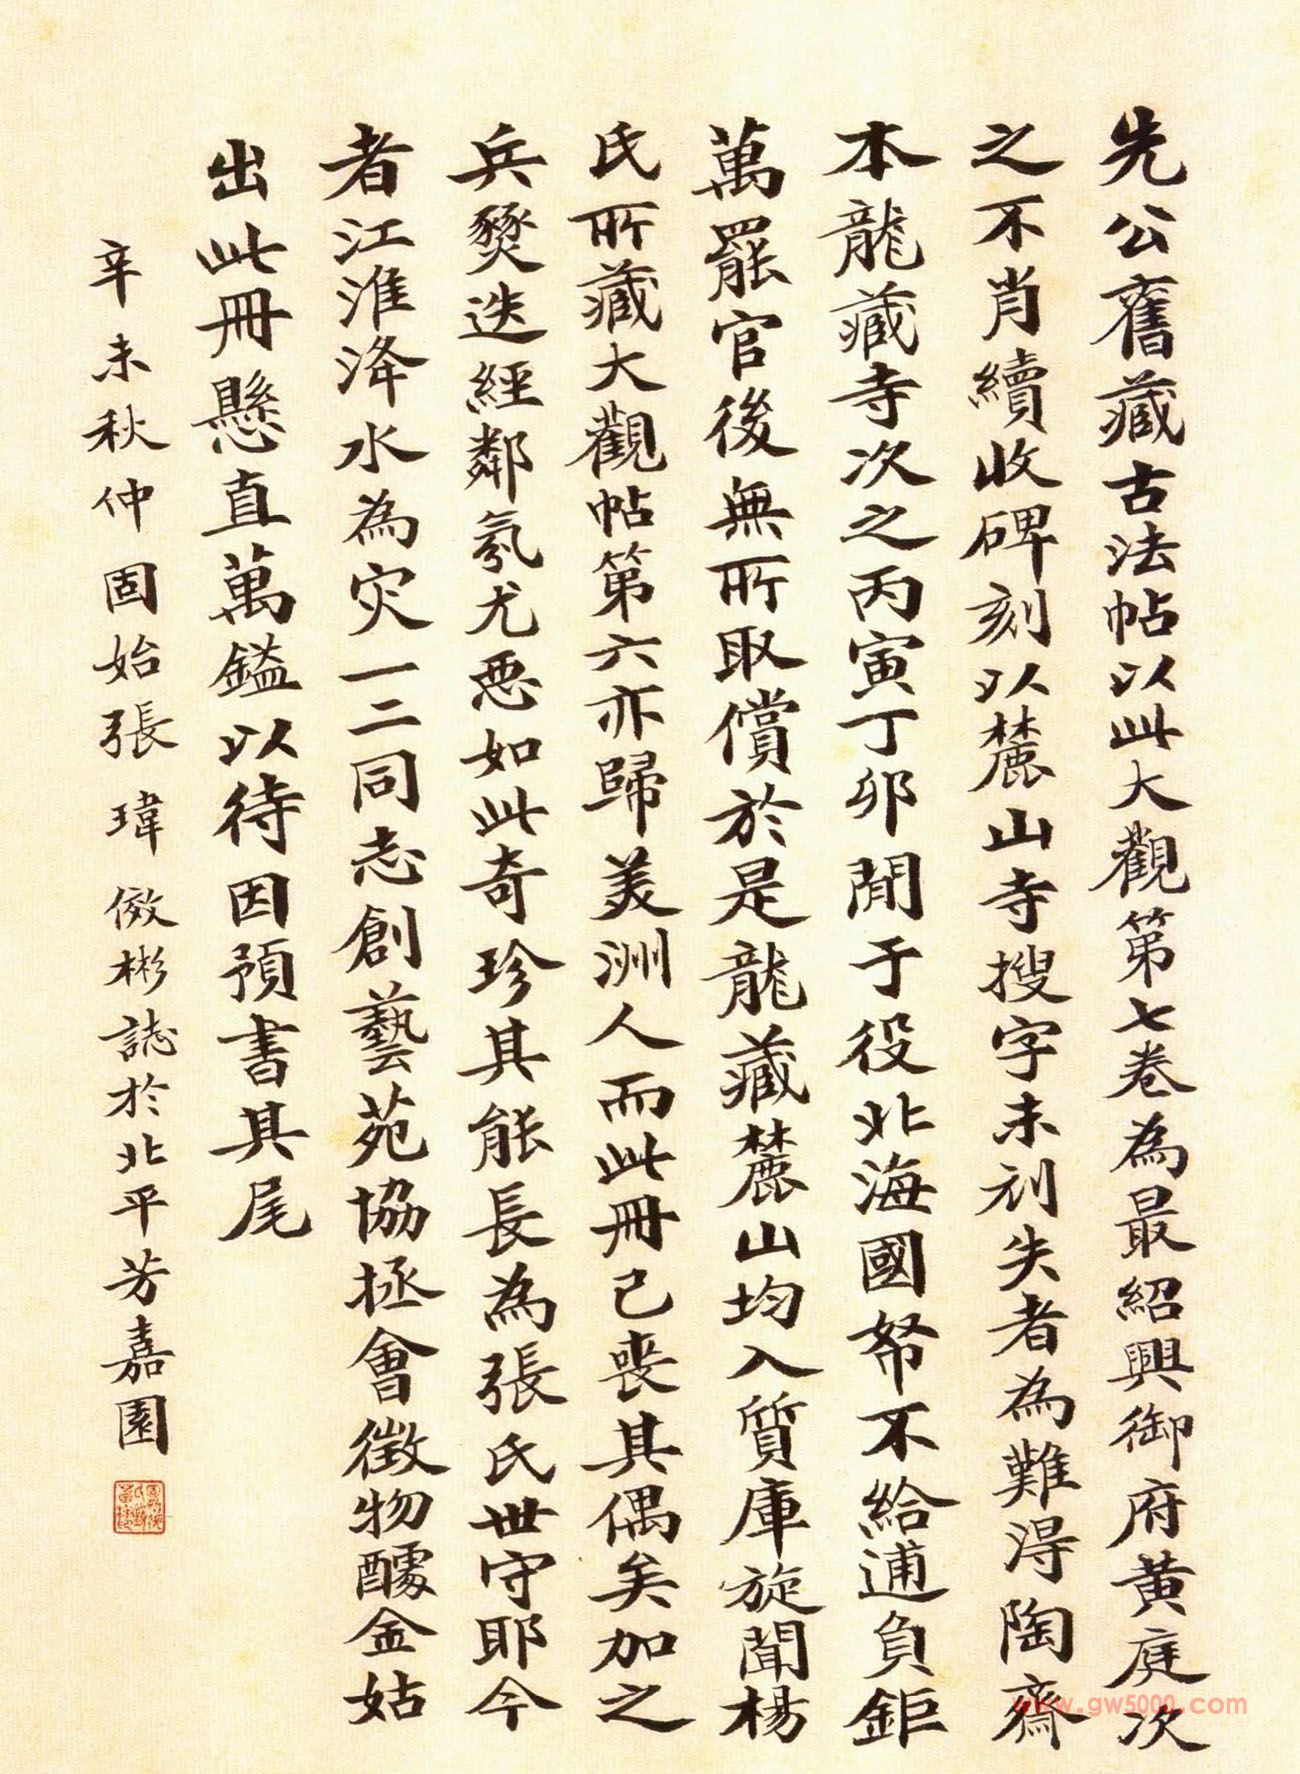 先公舊藏古法帖以此大觀第七卷為最紹興御府黃庭次
之不肖續收碑刻以麓山寺搜字未刓失者為難得陶齋
本龍藏寺次之丙寅丁卯閒于役北海國帑不給逋負鉅
萬罷官後無所取償於是龍藏麓山均入質庫旋聞楊
氏所藏大觀帖第六亦歸美洲人而此冊已喪其偶矣加之
兵燹迭經鄰氛尤惡如此奇珍其能長為張氏世守耶今
者江淮洚水為灾一二同志創藝苑協拯會徵物醵金姑
出此冊懸直萬鎰以待因預書其尾
辛未秋仲固始張瑋儆彬誌於北平芳嘉園
www.gw5000.com